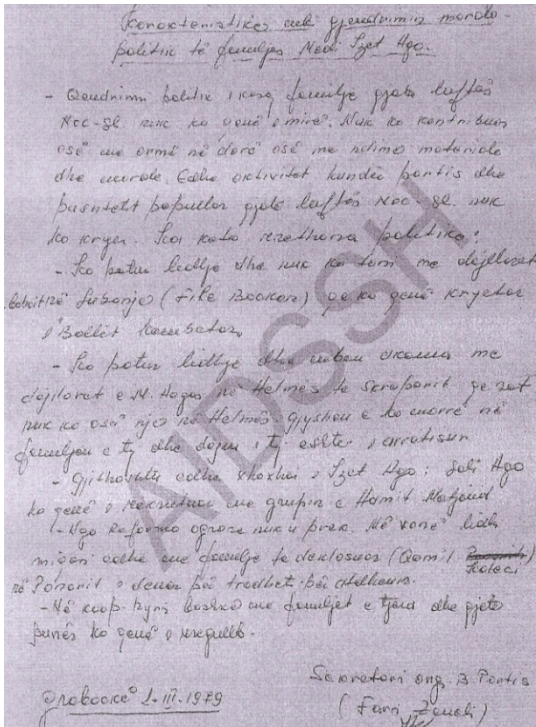 Karakteristikë mbi qendrimin moralo-
politik të familjes Medi Izet Ago.
- Qendrimi politik i kësaj familje gjatë luftës
Nac-çl. nuk ka qenë i mirë. Nuk ka kontribuar
ose me armë në dorë ose me ndima materiale
dhe morale. Edhe aktivitet kundër partis dhe
pushtetit popullor gjatë luftës Nac-çl. nuk
ka kryer. Ka këto rrethana politike:
- Ka patur lidhje dhe nuk ka tani me dajllarët
në Lubonjë (File Backen) që ka qenë kryetar
i Ballit Kombëtar.
- Ka patur lidhje dhe mban akoma me
dajllarët e M. Hagos në Helmës të Skraparit që sot
nuk ka asnjë në Helmës gjyshen e ka marrë në
familjen e tij dhe dajua i tij është i arratisur
- Gjithashtu edhe xhaxhai i Izet Ago: Sali Ago
ka qenë i rekrutuar me grupin e Hamit Matjanit
- Nga Reforma agrare nuk u prek. Më vonë lidh
miqësi edhe me familje të deklasuar (Qamil Koleci)
në Ponorit i dënuar për tradhëti për atdheun.
- Në koop. hyri bashkë me familjet e tjera dhe gjatë
punës ka qenë i rregullt.
Sekretari org. B. Partis
1-III-1979
(Fari Zeneli)
AIDSSH